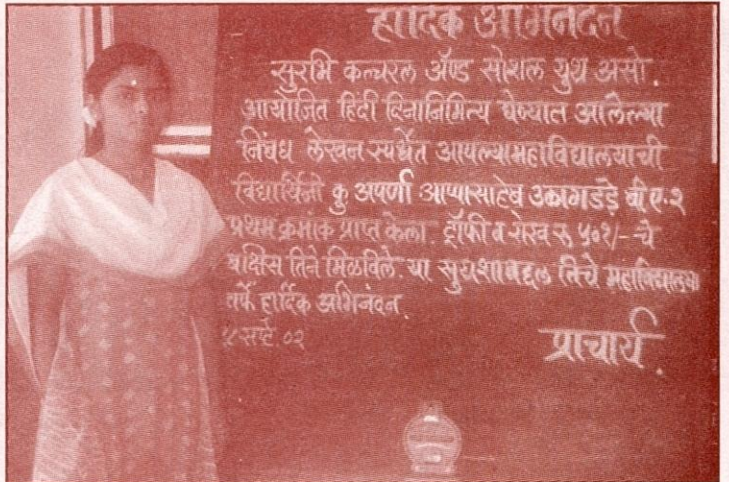 हार्दिक अभिनंदन
सुरभि कल्चरल अॅण्ड सोशल युथ असो.
आयोजित हिंदी दिनानिमित्य घेण्यात आलेल्या
निबंध लेखन स्पर्धेत आपल्यामहाविद्यालयाची
विद्यार्थिनी कु अपर्णा आप्पासाहेब बी ए-२
प्रथम क्रमांक प्राप्त केला. ट्रॉफी व रोख रु ५०१/- चे
बक्षिस तिने मिळविले. या सुयशाबद्दल तिचे महाविद्यालया
तर्फे हार्दिक अभिनंदन.
सप्टें. ०२
प्राचार्य.